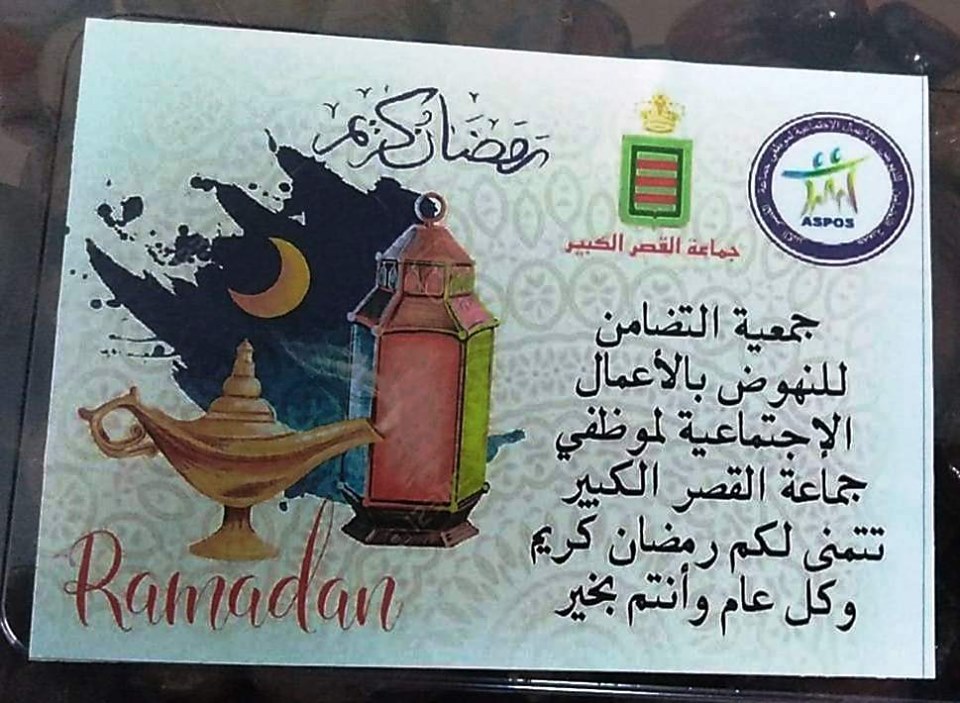 رمضان كريم
جماعة القصر الكبير
ASPOS
جمعية التضامن
للنهوض بالأعمال
الإجتماعية لموظفي
جماعة القصر الكبير
تتمنى لكم رمضان كريم
وكل عام وأنتم بخير
Ramadan